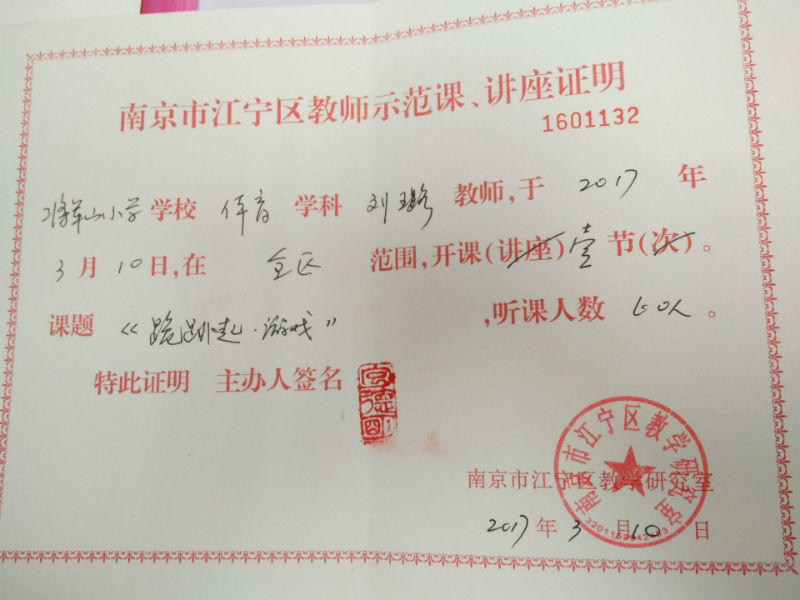 南京市江宁区教师示范课、讲座证明
1601132
将军山小学 学校 体育 学科 刘璐 教师,于 2017 年
3 月 10 日,在 全区 范围,开课(讲座)壹 节(次)。
课题 《跪跳起·游戏》 ,听课人数 60人 。
特此证明 主办人签名
南京市江宁区教学研究室
南京市江宁区教学研究室
2017 年 3 月 10 日